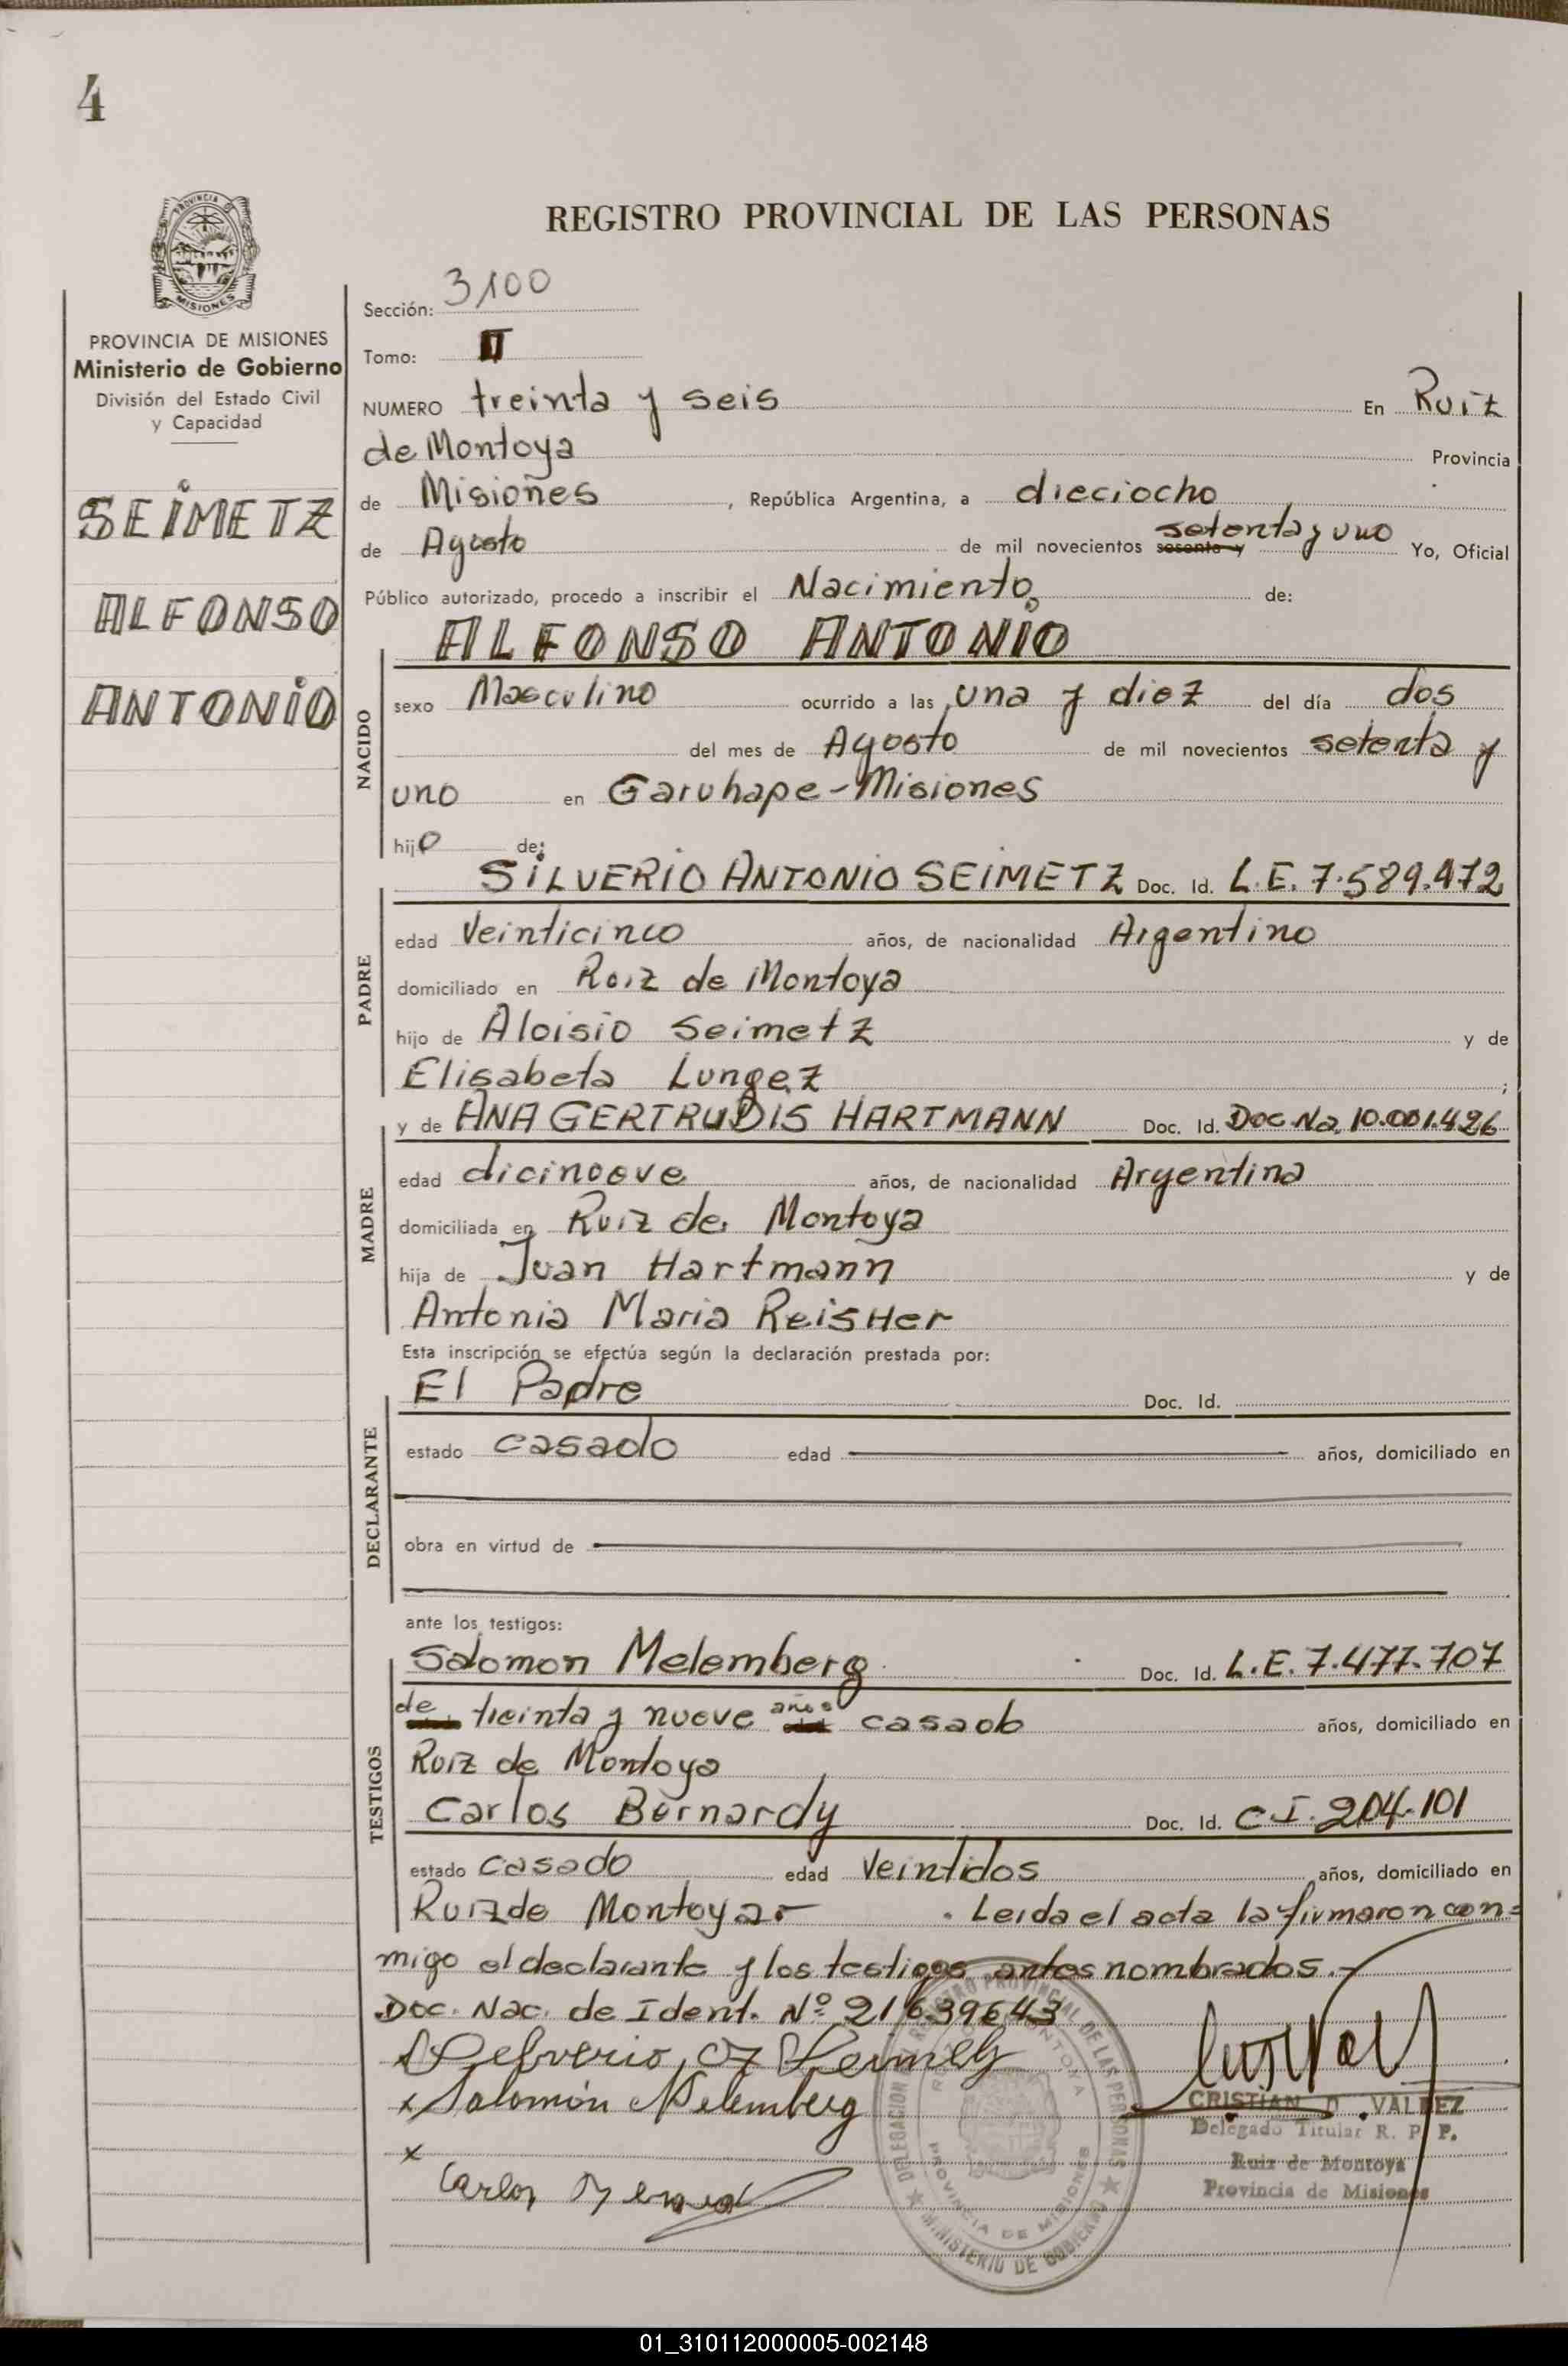 4
PROVINCIA DE MISIONES
PROVINCIA DE MISIONES
Ministerio de Gobierno
División del Estado Civil
y Capacidad
SEIMETZ
ALFONSO
ANTONIO
REGISTRO PROVINCIAL DE LAS PERSONAS
Sección: 3100
Tomo: II
NUMERO treinta y seis En Ruiz
de Montoya Provincia
de Misiones, República Argentina, a dieciocho
de Agosto de mil novecientos sesenta y setenta y uno Yo, Oficial
Público autorizado, procedo a inscribir el Nacimiento de:
ALFONSO ANTONIO
NACIDO
sexo Masculino ocurrido a las una y diez del día dos
del mes de Agosto de mil novecientos setenta y
uno en Garuhape-Misiones
hijo de:
SILVERIO ANTONIO SEIMETZ Doc. Id. L.E. 7.589.472
PADRE
edad Veinticinco años, de nacionalidad Argentino
domiciliado en Ruiz de Montoya
hijo de Aloisio Seimetz y de
Elisabeta Lungez ;
y de ANA GERTRUDIS HARTMANN Doc. Id. Doc. Na. 10.001.426
MADRE
edad dicinoeve años, de nacionalidad Argentina
domiciliada en Ruiz de Montoya
hija de Juan Hartmann y de
Antonia Maria ReisHer
Esta inscripción se efectúa según la declaración prestada por:
El Padre Doc. Id.
DECLARANTE
estado casado edad años, domiciliado en
obra en virtud de
ante los testigos:
Salomon Melemberg Doc. Id. L.E. 7.477.707
TESTIGOS
de treinta y nueve años casado años, domiciliado en
Ruiz de Montoya
Carlos Bernardy Doc. Id. C.I. 204.101
estado casado edad Veintidos años, domiciliado en
Ruiz de Montoya.- . Leida el acta la firmaron con=
migo el declarante y los testigos antes nombrados.-
Doc. Nac. de Ident. Nº 21639643
x Salomón Melemberg
x
Carlos
DELEGACION REGISTRO PROVINCIAL DE LAS PERSONAS
RUIZ DE MONTOYA
PROVINCIA DE MISIONES
MINISTERIO DE GOBIERNO
CRISTIAN D. VALDEZ
Delegado Titular R. P. P.
Ruiz de Montoya
Provincia de Misiones
01_310112000005-002148